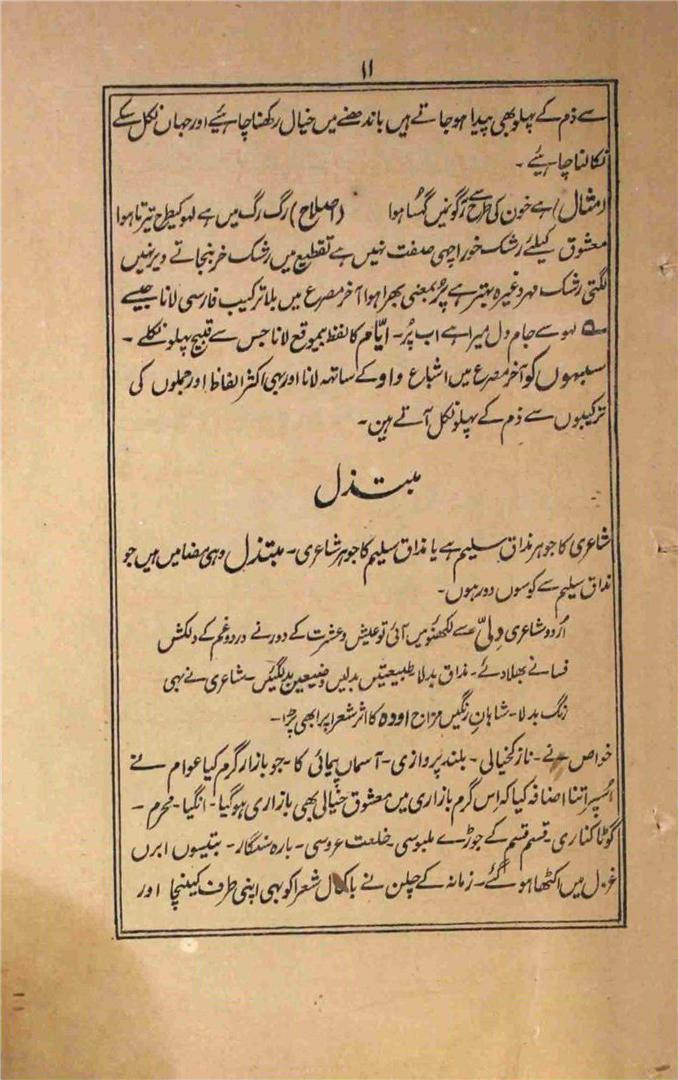 ۱۱
سے ذم کے پہلو بھی پیدا ہو جاتے ہیں باندھنے میں خیال رکھنا چاہئیے اور جہان نکل سکے
نکالنا چاہیئے ۔
(مثال) ہے خون کی طرح سے رگونمیں گھُسا ہوا (اصلاح) رگ رگ میں ہے لہو کیطرح تیرتا ہوا
معشوق کیلئے رشک خور اچھی صفت نہیں ہے تقطیع میں رشک خر بنجاتے دیر نہیں
لگتی رشک مہر وغیرہ بہتر ہے پُر بمعنی بھرا ہوا آخر مصرع میں بلا ترکیب فارسی لانا جیسے
؎ لہو سے جام دل میرا ہے اب پُر ۔ ایّام کا لفظ بیموقع لانا جس سے قبیح پہلو نکلے ۔
سبہوں کو آخر مصرع میں اشباع واو کے ساتھ لانا اور یہی اکثر الفاظ اور جملوں کی
ترکیبوں سے ذم کے پہلو نکل آتے ہین ۔
مبتذل
شاعری کا جوہر مذاق سلیم ہے یا مذاق سلیم کا جوہر شاعری ۔ مبتذل وہی مضامیں ہیں جو
مذاق سلیم سے کوسوں دور ہوں ۔
اُردو شاعری دلّی سے لکھنؤمیں آئی تو عیش و عشرت کے دور نے درد و غم کے دلکش
فسانے بھلا دئے ۔ مذاق بدلا طبیعتیں بدلیں وضیعیں بدلگئیں ۔ شاعری نے بہی
رنگ بدلا ۔ شاہانِ رنگیں مزاح اودہ کا اثر شعرا پر ابھی پڑا ۔
خواص نے ۔ نازکخیالی ۔ بلند پروازی ۔ آسماں پیمائی کا ۔ جو بازار گرم کیا عوام نے
اُسپر اتنا اضافہ کیا کہ اس گرم بازاری میں معشوق خیالی بھی بازاری ہو گیا ۔ انگیا ۔ محرم ۔
گوٹا کناری ۔ قسم قسم کے جوڑے ملبوسی خلعت عروسی ۔ بارہ سنگار ۔ بتیسوں ابرں
غزل میں اکٹھا ہو گئے ۔ زمانہ کے چلن نے باکمال شعرا کو بہی اپنی طرف کھینچا اور